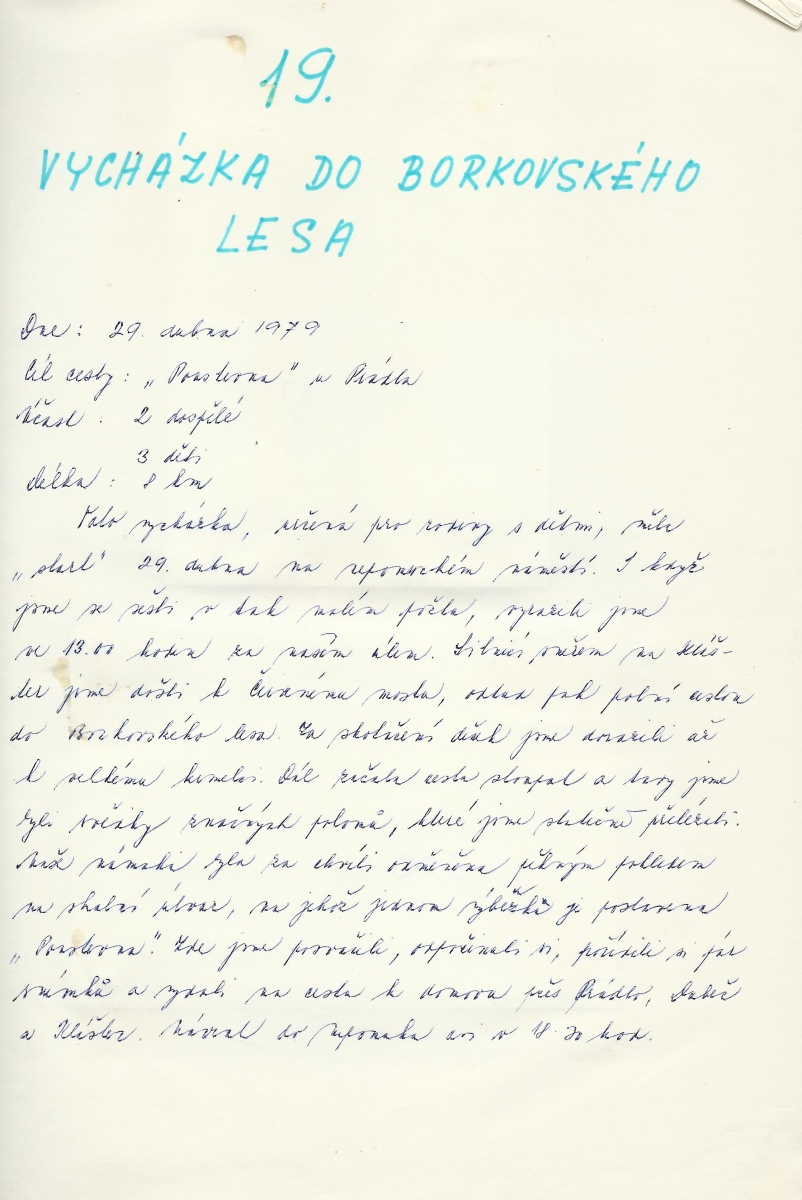 19.
VYCHÁZKA DO BORKOVSKÉHO
LESA
Dne: 29. dubna 1979
Cíl cesty: „Poustevna" u Prádla
Účast: 2 dospělé
3 děti
Délka: 8 km
Tato vycházka, určená pro rodiny s dětmi, měla
„start" 29. dubna na nepomuckém náměstí. I když
jsme se sešli v tak malém počtu, vyrazili jsme
ve 13.00 hodin za naším cílem. Silnicí směrem na Kláš-
ter jsme došli k Červenému mostu, odtud pak polní cestou
do Borkovského lesa. Za skotačení dětí jsme dorazili až
k velkému kamelos. Dál začala cesta stoupat a tady jsme
byli svědky značných polomů, které jsme statečně přelézali.
Naše námaha byla za chvíli odměněna pěkným pohledem
na skalní útvar, na jehož jednom výběžku je postavena
„Poustevna". Zde jsme posvačili, odpočinuli si, pořídili si pár
snímků a vydali na cestu k domovu přes Prádlo, Dubeč
a Klášter. Návrat do Nepomuka asi v 18.30 hod.